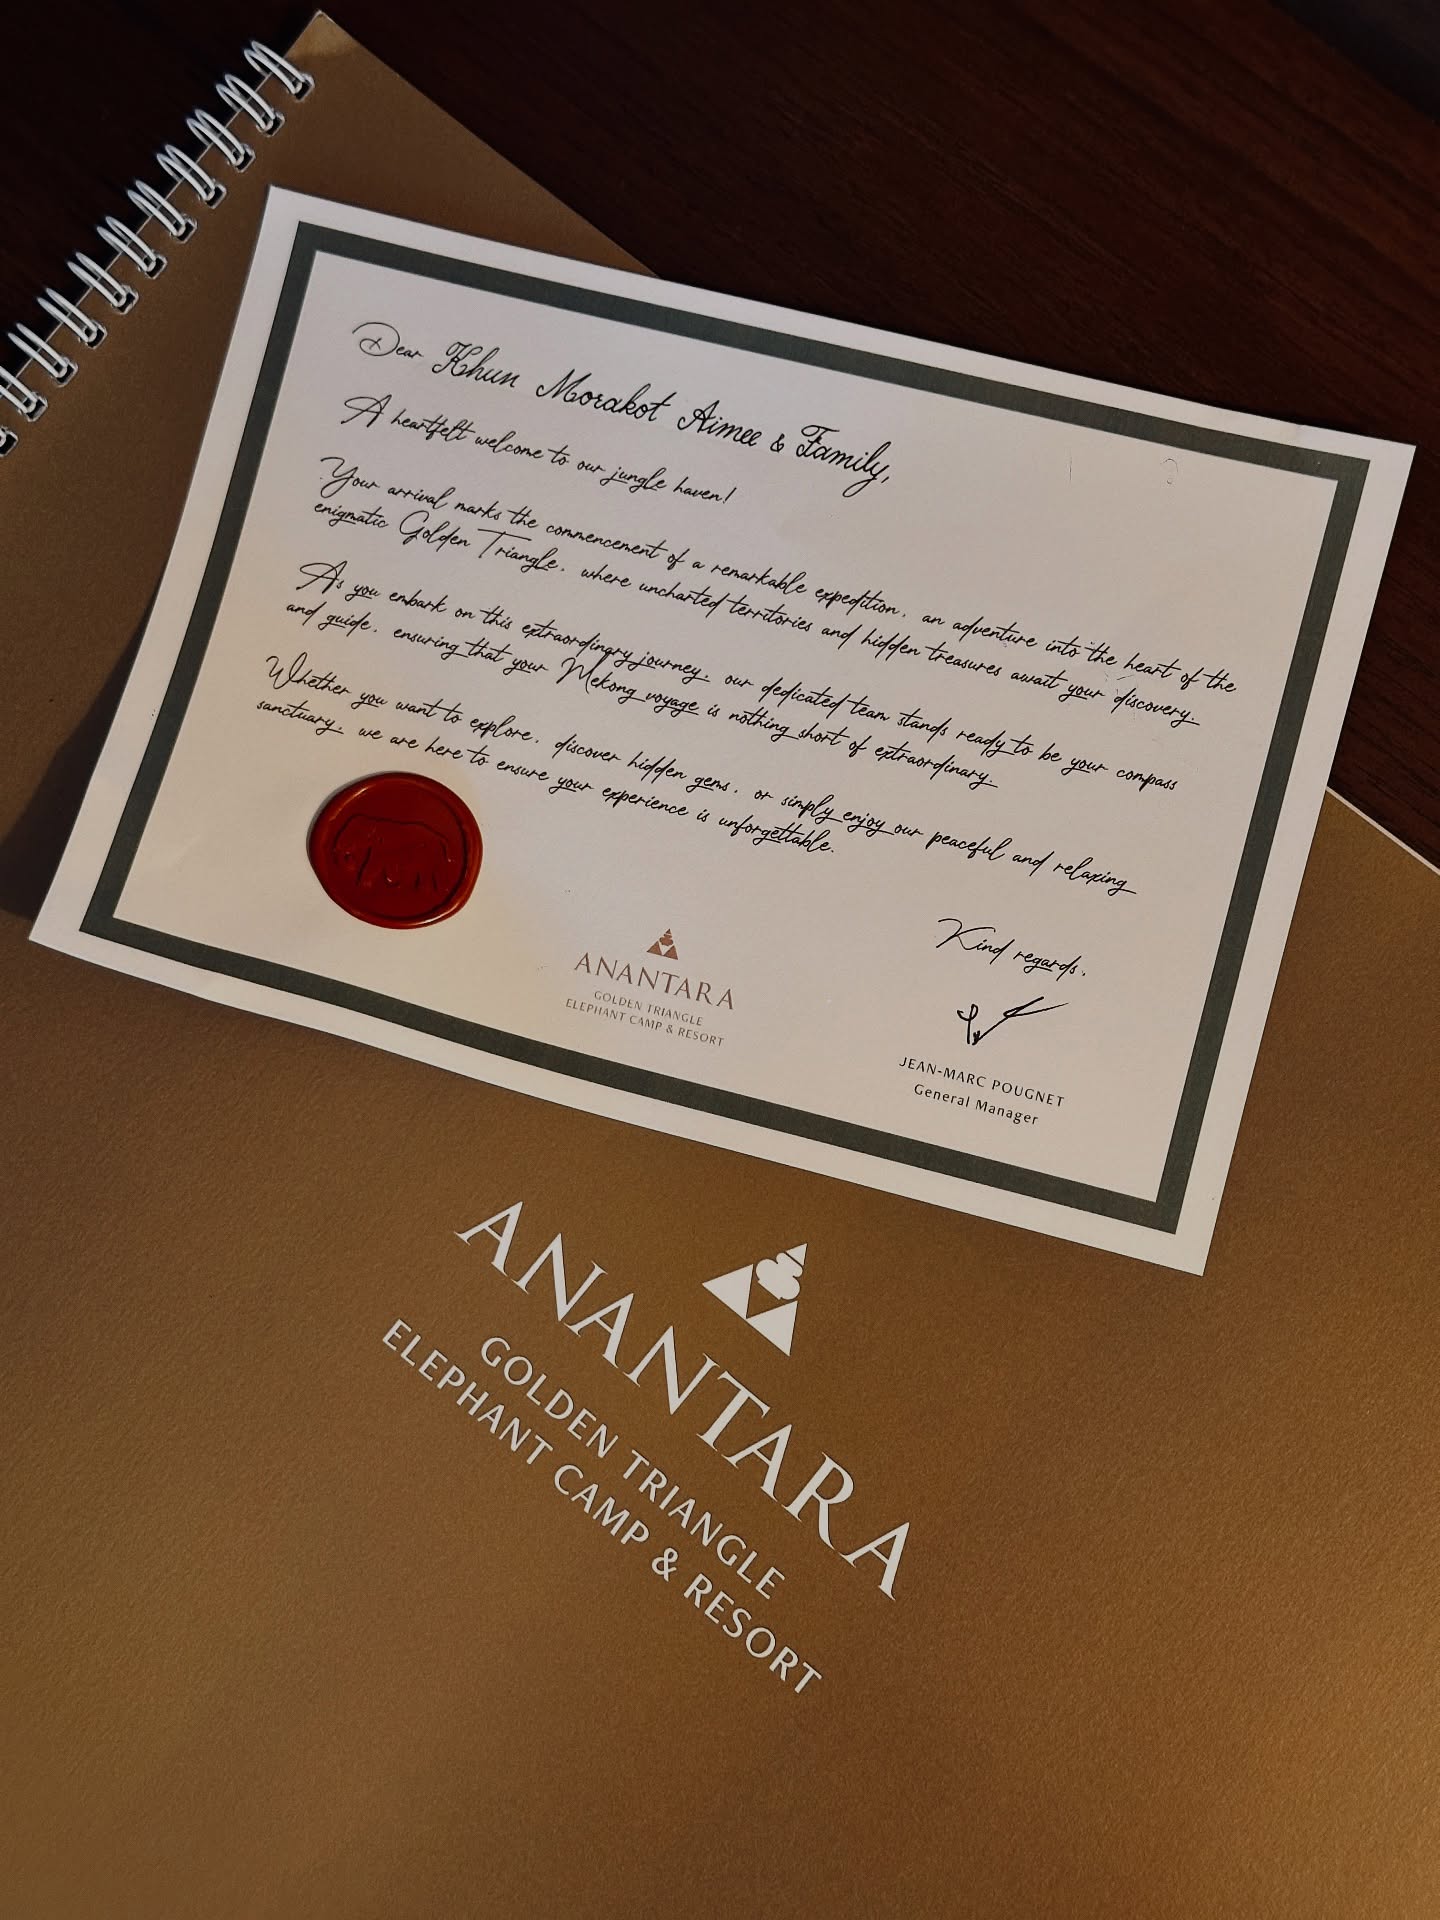 Dear Khun Morakot Aimee & Family,
A heartfelt welcome to our jungle haven!
Your arrival marks the commencement of a remarkable expedition, an adventure into the heart of the
enigmatic Golden Triangle, where uncharted territories and hidden treasures await your discovery.
As you embark on this extraordinary journey, our dedicated team stands ready to be your compass
and guide, ensuring that your Mekong voyage is nothing short of extraordinary.
Whether you want to explore, discover hidden gems, or simply enjoy our peaceful and relaxing
sanctuary, we are here to ensure your experience is unforgettable.
Kind regards,
JEAN-MARC POUGNET
General Manager
ANANTARA
GOLDEN TRIANGLE
ELEPHANT CAMP & RESORT
ANANTARA
GOLDEN TRIANGLE
ELEPHANT CAMP & RESORT